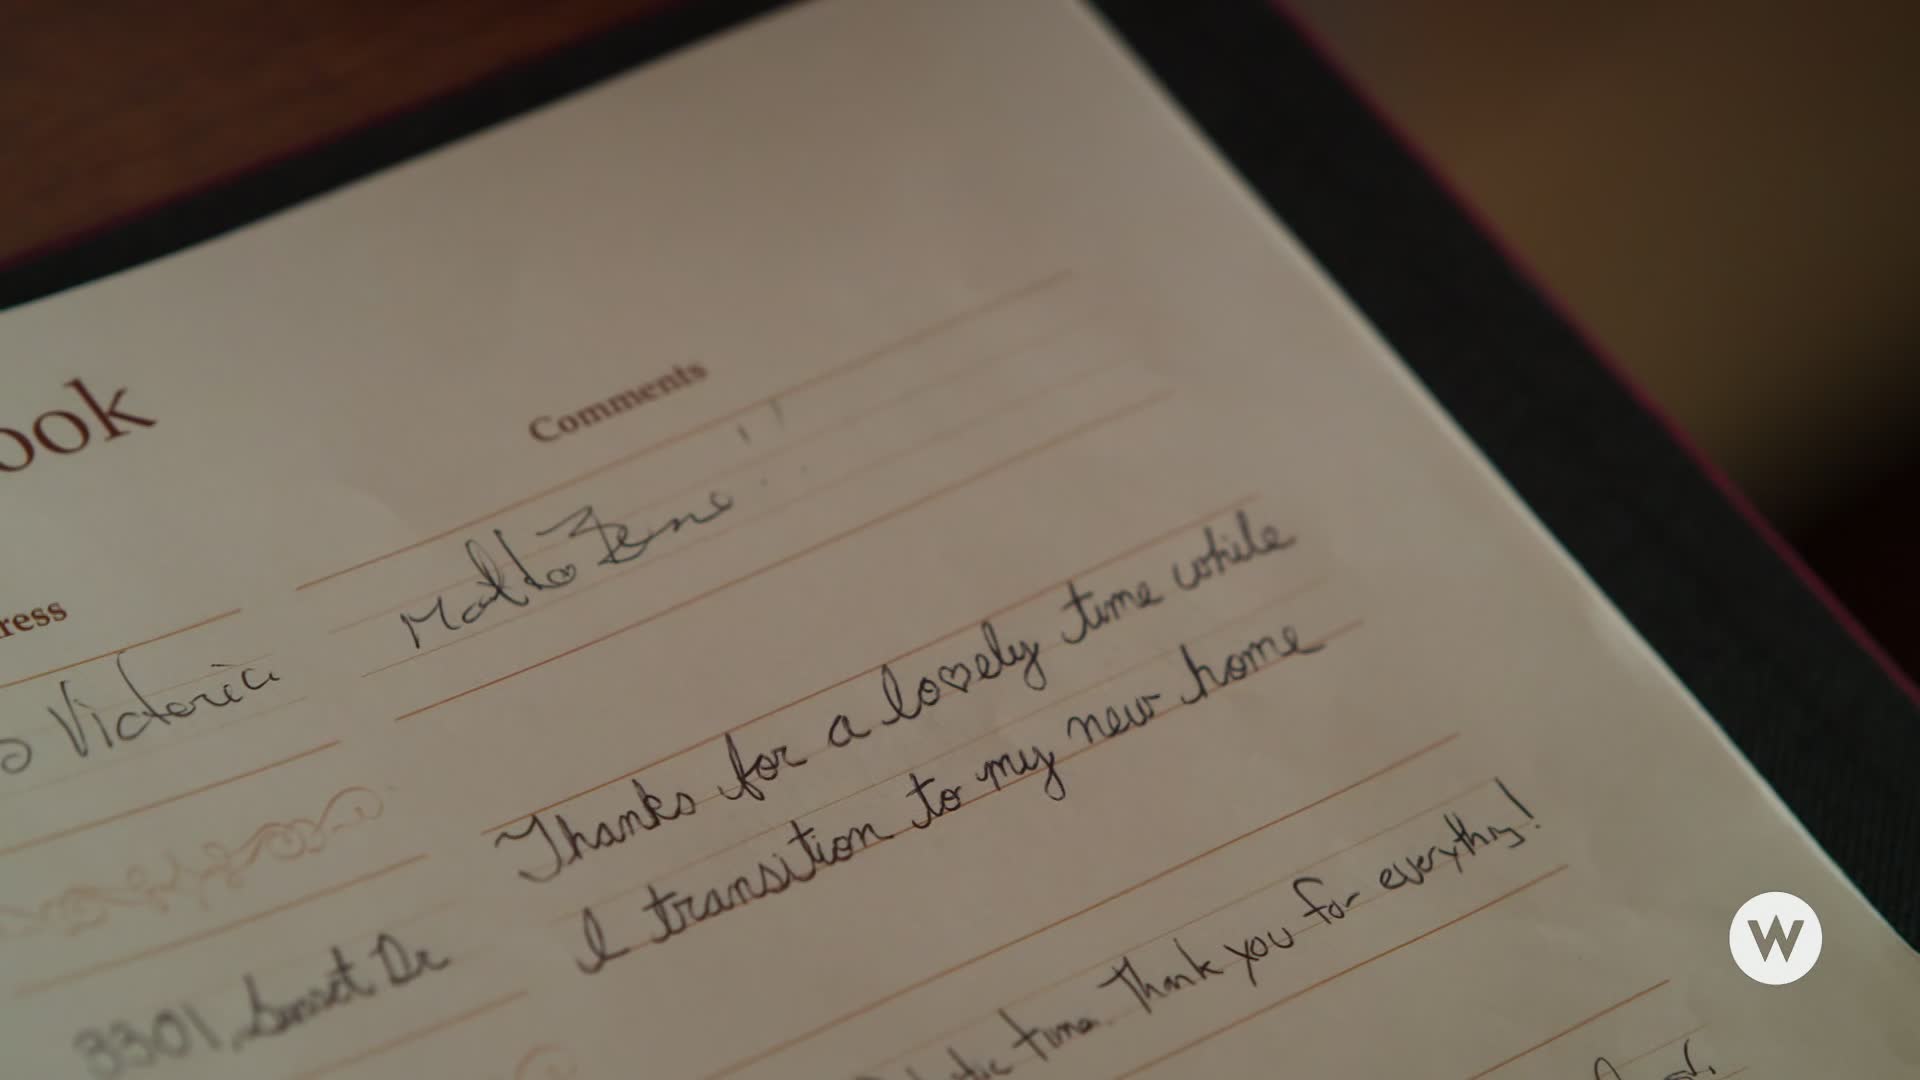 ook
Comments
ress
Victoria
Molto Bene!!
Thanks for a lovely time while
I transition to my new home
3301, Sunset Dr
time. Thank you for everything!
W